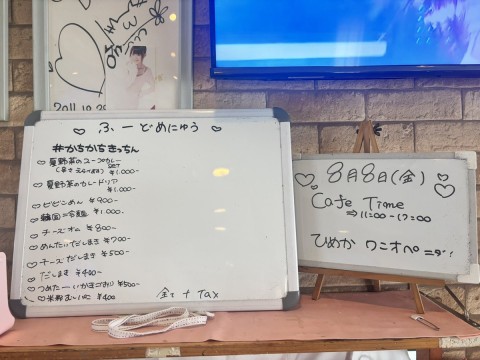 2011.10.25
♡ ふーどめにゅう ♡
#かちかちきっちん
♡ 夏野菜のスープカレー
(辛さえらべます) ¥1.000-
♡ 夏野菜のカレードリア
¥1.000-
♡ ビビンめん ¥900-
♡ 韓国冷麺 ¥1.000-
♡ チーズオム ¥800-
♡ めんたいだしまき ¥700-
♡ チーズだしまき ¥500-
♡ だしまき ¥400-
♡ つめたーい ¥500-
♡ ¥400
全て + Tax
8月8日(金)
Cafe Time
⇒ 11:00-17:00
ひめか ワンオペ